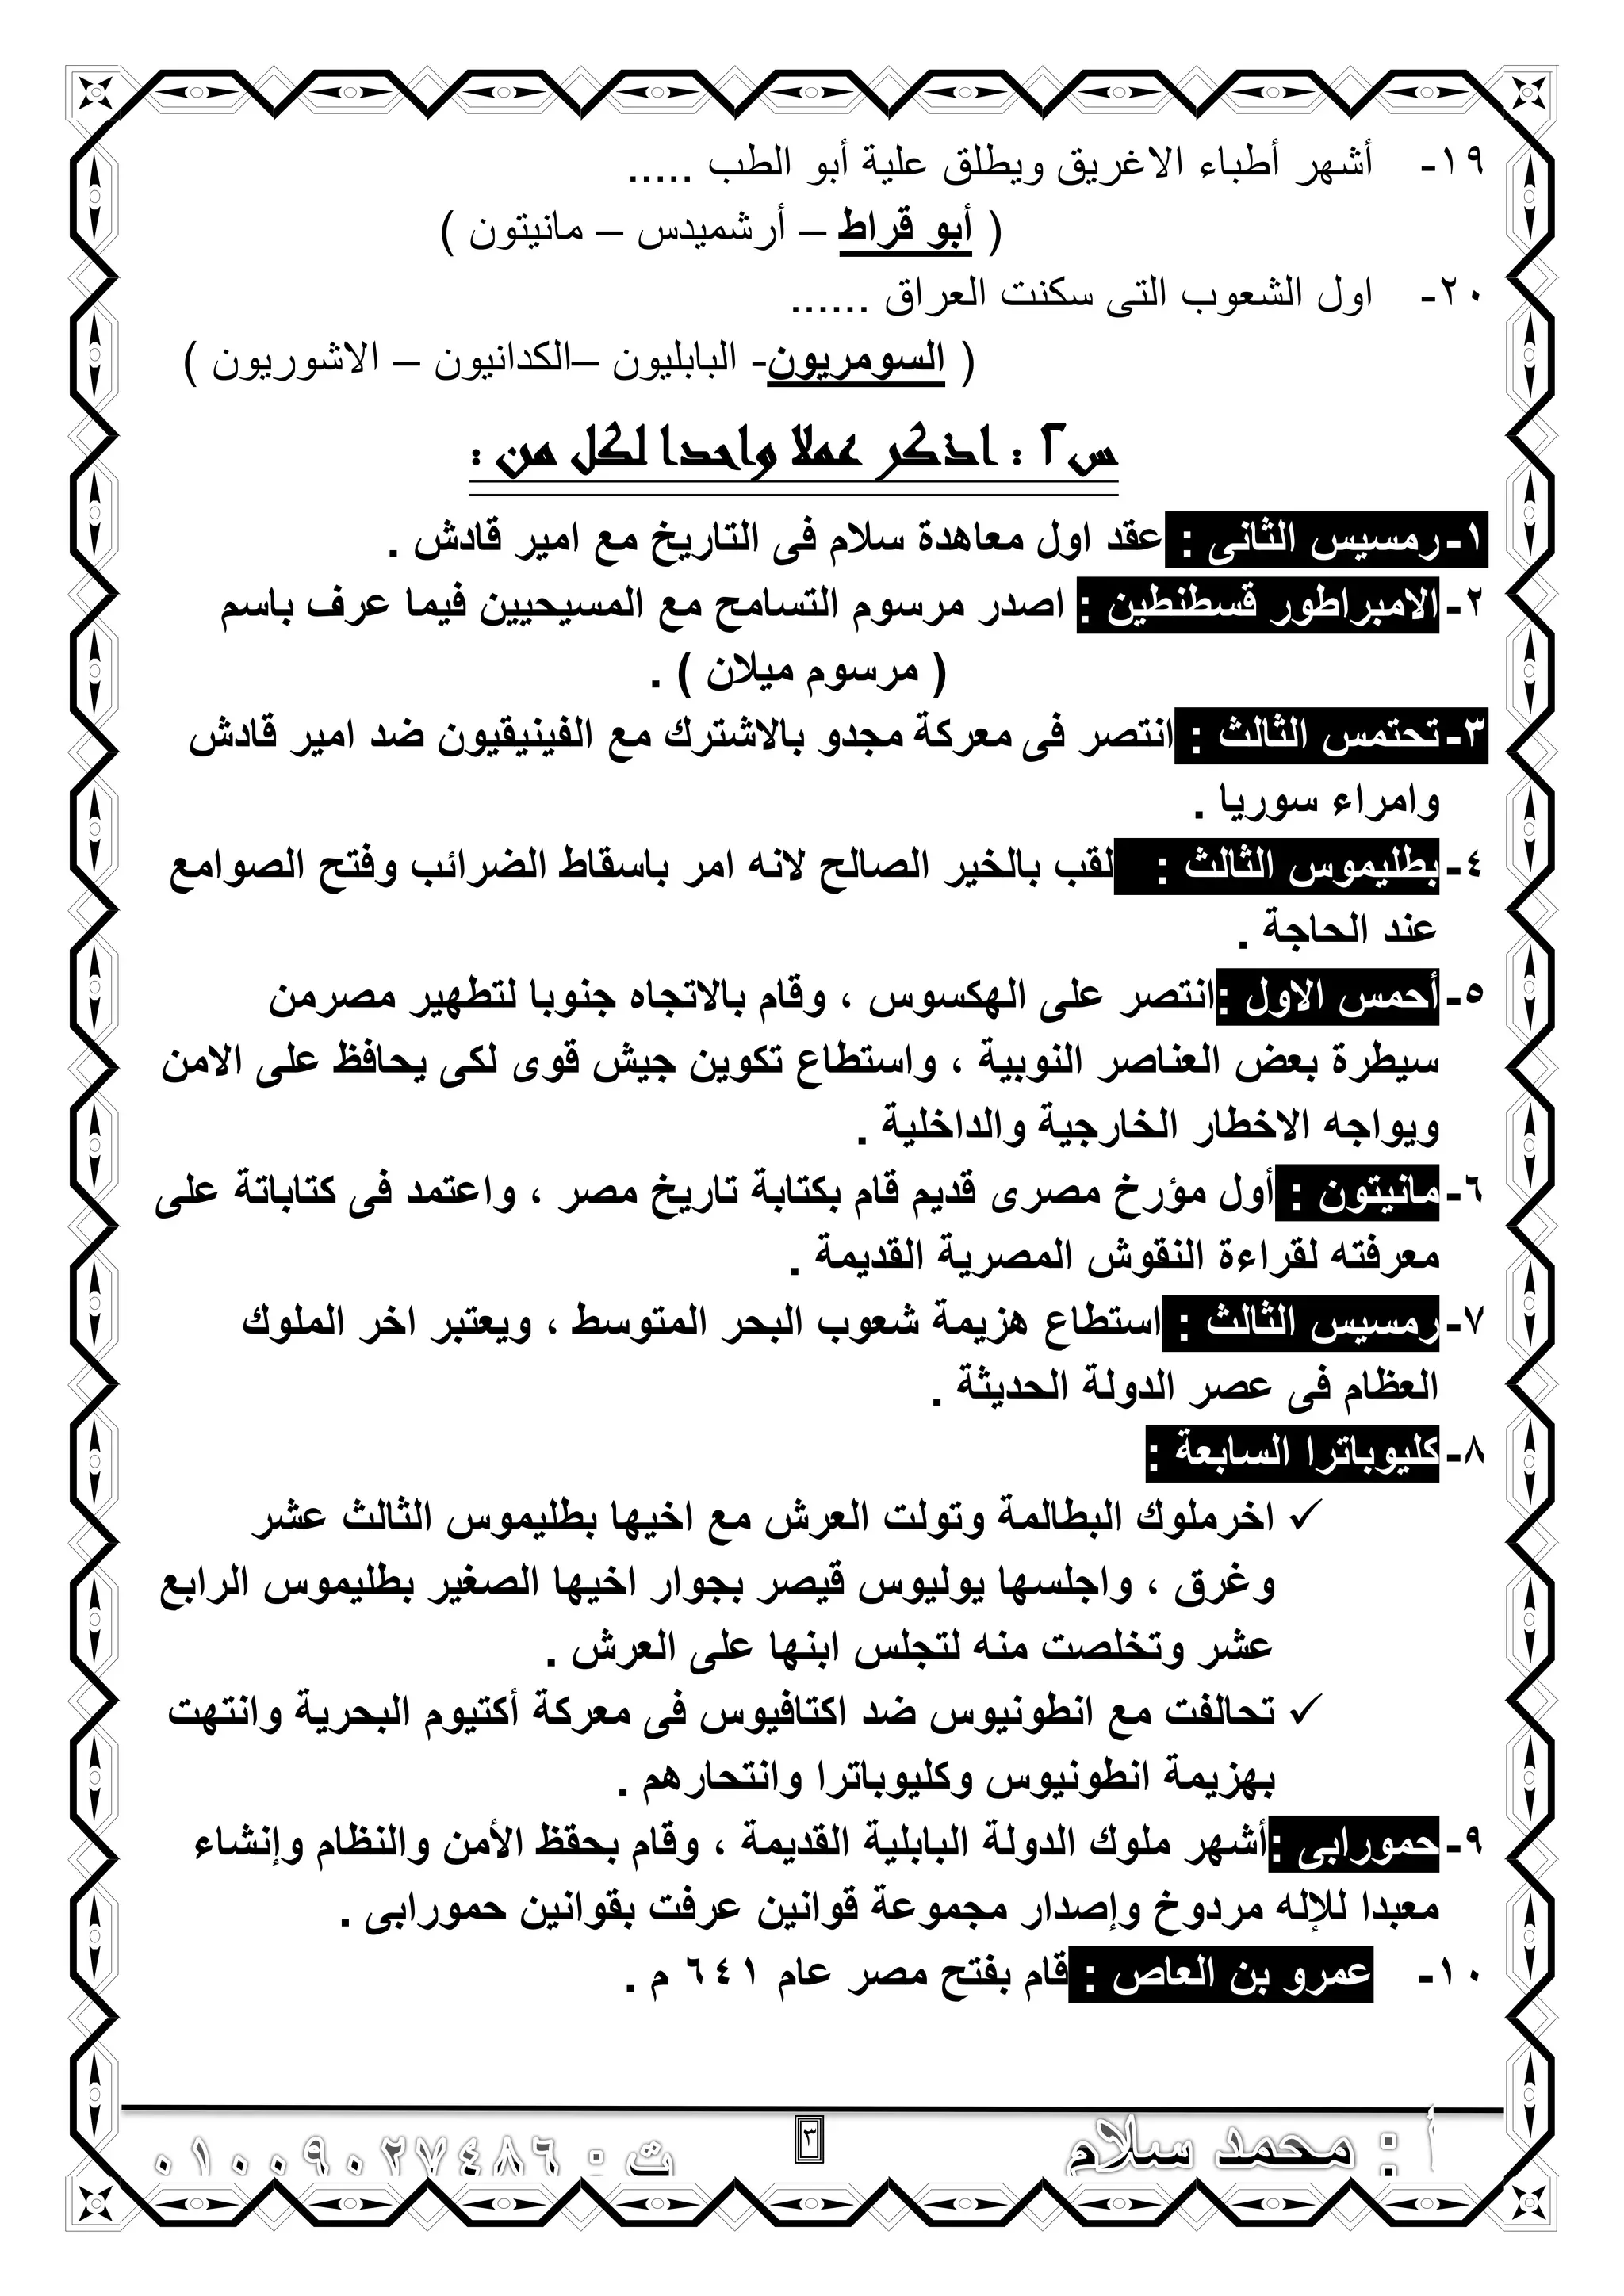 ١٩- أشهر أطباء الاغريق ويطلق علية أبو الطب .....
( أبو قراط – أرشميدس – مانيتون )
٢٠- اول الشعوب التى سكنت العراق ......
( السومريون- البابليون –الكدانيون – الاشوريون )
س٢ : اذكر عملا واحدا لكل من :
١- رمسيس الثانى : عقد اول معاهدة سلام فى التاريخ مع امير قادش .
٢- الامبراطور قسطنطين : اصدر مرسوم التسامح مع المسيحيين فيما عرف باسم
( مرسوم ميلان ) .
٣- تحتمس الثالث : انتصر فى معركة مجدو بالاشترك مع الفينيقيون ضد امير قادش
وامراء سوريا .
٤- بطليموس الثالث : لقب بالخير الصالح لانه امر باسقاط الضرائب وفتح الصوامع
عند الحاجة .
٥- أحمس الاول :انتصر على الهكسوس ، وقام بالاتجاه جنوبا لتطهير مصرمن
سيطرة بعض العناصر النوبية ، واستطاع تكوين جيش قوى لكى يحافظ على الامن
ويواجه الاخطار الخارجية والداخلية .
٦- مانيتون : أول مؤرخ مصرى قديم قام بكتابة تاريخ مصر ، واعتمد فى كتاباتة على
معرفته لقراءة النقوش المصرية القديمة .
٧- رمسيس الثالث : استطاع هزيمة شعوب البحر المتوسط ، ويعتبر اخر الملوك
العظام فى عصر الدولة الحديثة .
٨- كليوباترا السابعة :
✓ اخرملوك البطالمة وتولت العرش مع اخيها بطليموس الثالث عشر
وغرق ، واجلسها يوليوس قيصر بجوار اخيها الصغير بطليموس الرابع
عشر وتخلصت منه لتجلس ابنها على العرش .
✓ تحالفت مع انطونيوس ضد اكتافيوس فى معركة أكتيوم البحرية وانتهت
بهزيمة انطونيوس وكليوباترا وانتحارهم .
٩- حمورابى :أشهر ملوك الدولة البابلية القديمة ، وقام بحقظ الأمن والنظام وإنشاء
معبدا للإله مردوخ وإصدار مجموعة قوانين عرفت بقوانين حمورابى .
١٠- عمرو بن العاص : قام بفتح مصر عام ٦٤١ م .
أ : محمد سلام ٣ ت : ٠١٠٠٩٠٢٧٤٨٦